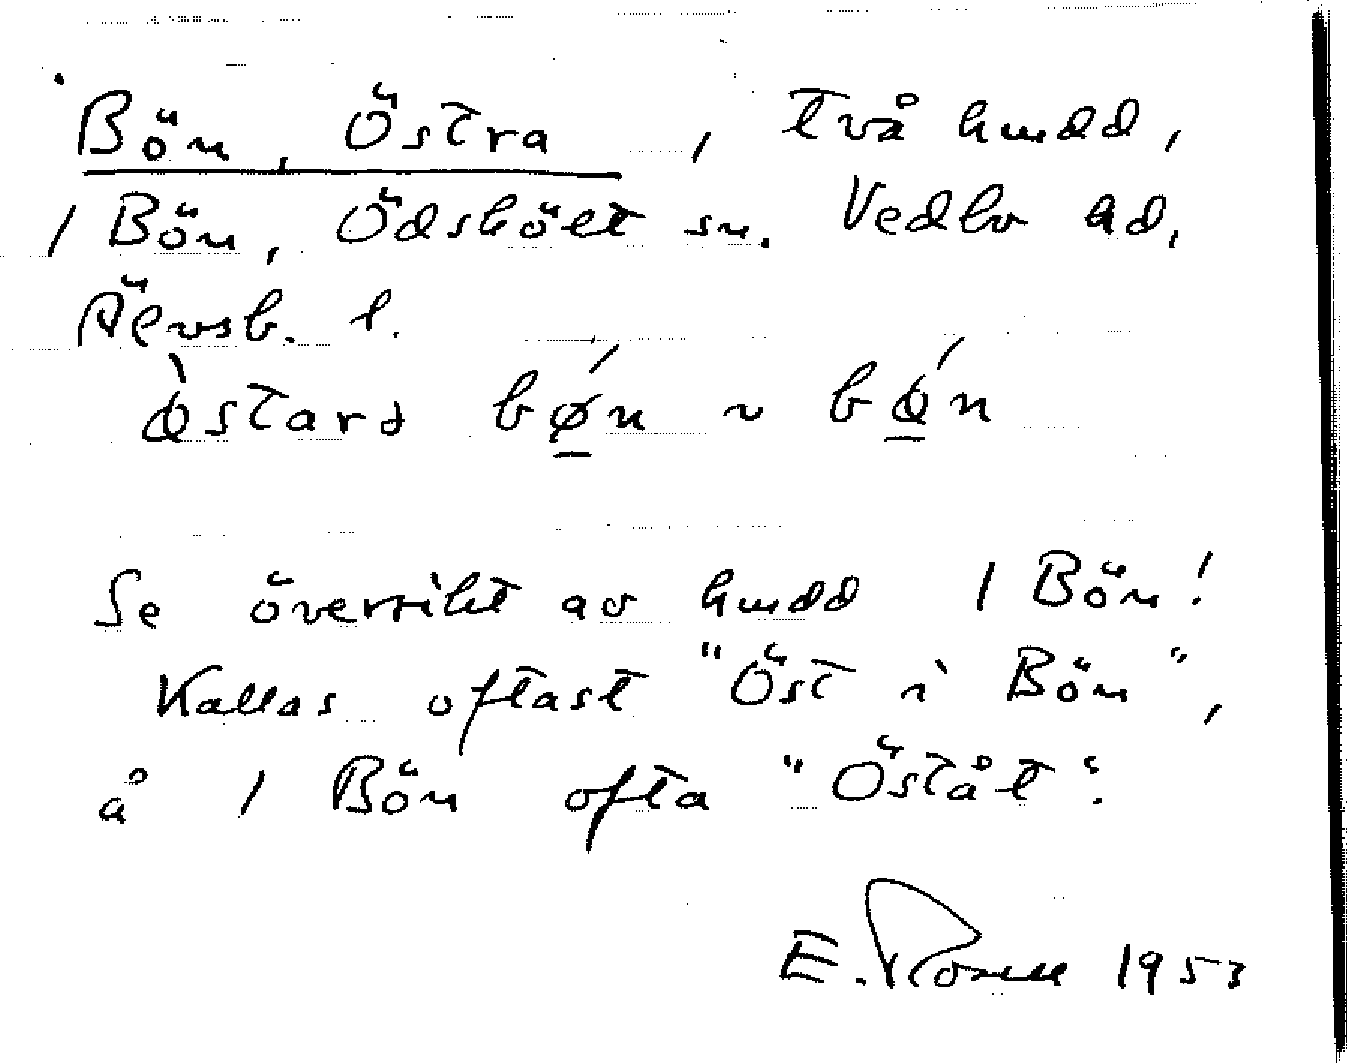 Bön, Östra, två hmdd,
/ Bön, Ödskölt sn. Vedbo hd,
Älvsb. l.
bǿn ~ bǿn
Se översikt av hmdd / Bön!
Kallas oftast "Öst i Bön",
å / Bön ofta "Öståt".
E. Rosell 1953